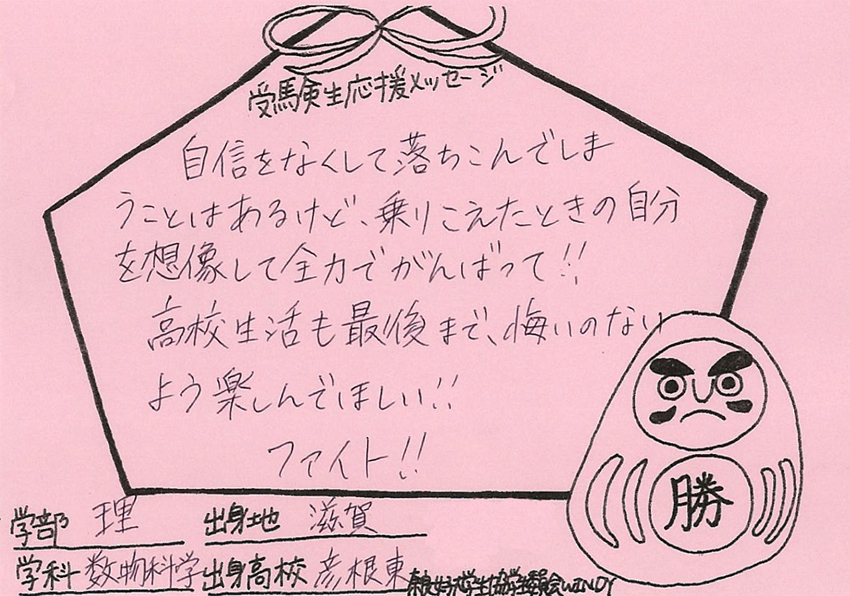 受験生応援メッセージ
自信をなくして落ちこんでしま
うことはあるけど、乗りこえたときの自分
を想像して全力でがんばって!!
高校生活も最後まで、悔いのない
よう楽しんでほしい!!
ファイト!!
勝
学部 理 出身地 滋賀
学科 数物科学 出身高校 彦根東
奈良女子大学生協学生委員会WINDY